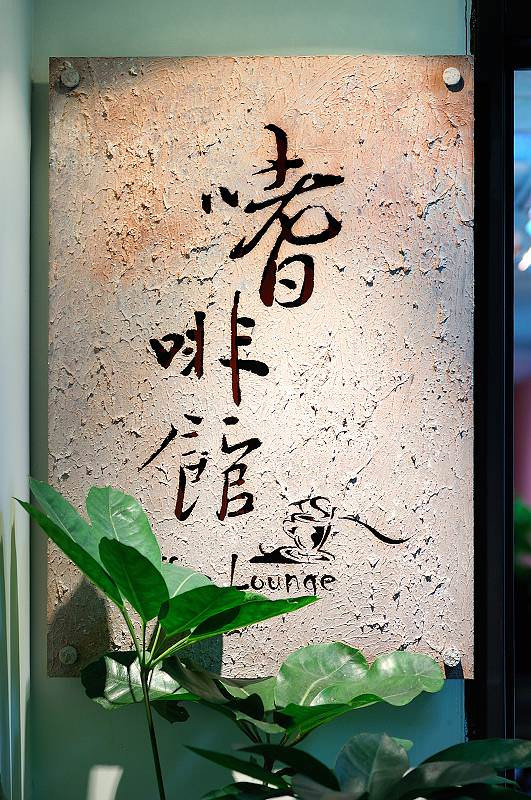 嗜
啡
館
Lounge